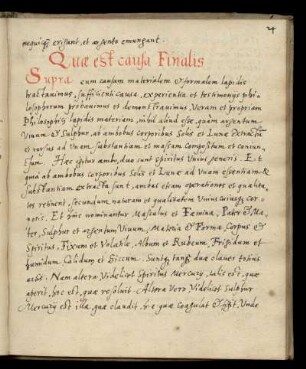 24
Quæ est causa Finalis
Supra cum causam materialem et formalem lapidis
tractavimus, sufficienti causa, experientia et testimonijs philo=
losophorum percurrimus et demonstravimus, Veram et propriam
Philosophici lapidis materiam, nihil aliud esse, quam argentum
Vivum et Sulphur, ab ambobus corporibus Solis et Lunæ extractū
et rursus ad Unam substantiam et massam compositum et coniun,
ctum. Hæc igitur ambo, duo sunt spiritus Unius generis. Et
quia ab ambobus corporibus Solis et Lunæ ad Unam essentiam &
substantiam extracta sunt, ambas etiam operationes et qualita,
tes retinent, secundum naturam et qualitatem Uniuscuiusq cor=
poris. Et hinc nominantur Masculus et Fæmina, Pater et Ma,
ter, Sulphur et argentum Vivum, Materia et Forma, Corpus et
Spiritus, Fixum et Volatile, Album et Rubeum, Frigidum et
humidum Calidum et Siccum. Suntq tanq duæ claves totius
artis. Nam altera Videlicet Spiritus Mercurij, talis est, quæ
aperit, hoc est, quæ resoluit. Altera Vero Videlicet Sulphur
Mercurij est illa, quæ claudit, hoc quæ coagulat et figit, Unde